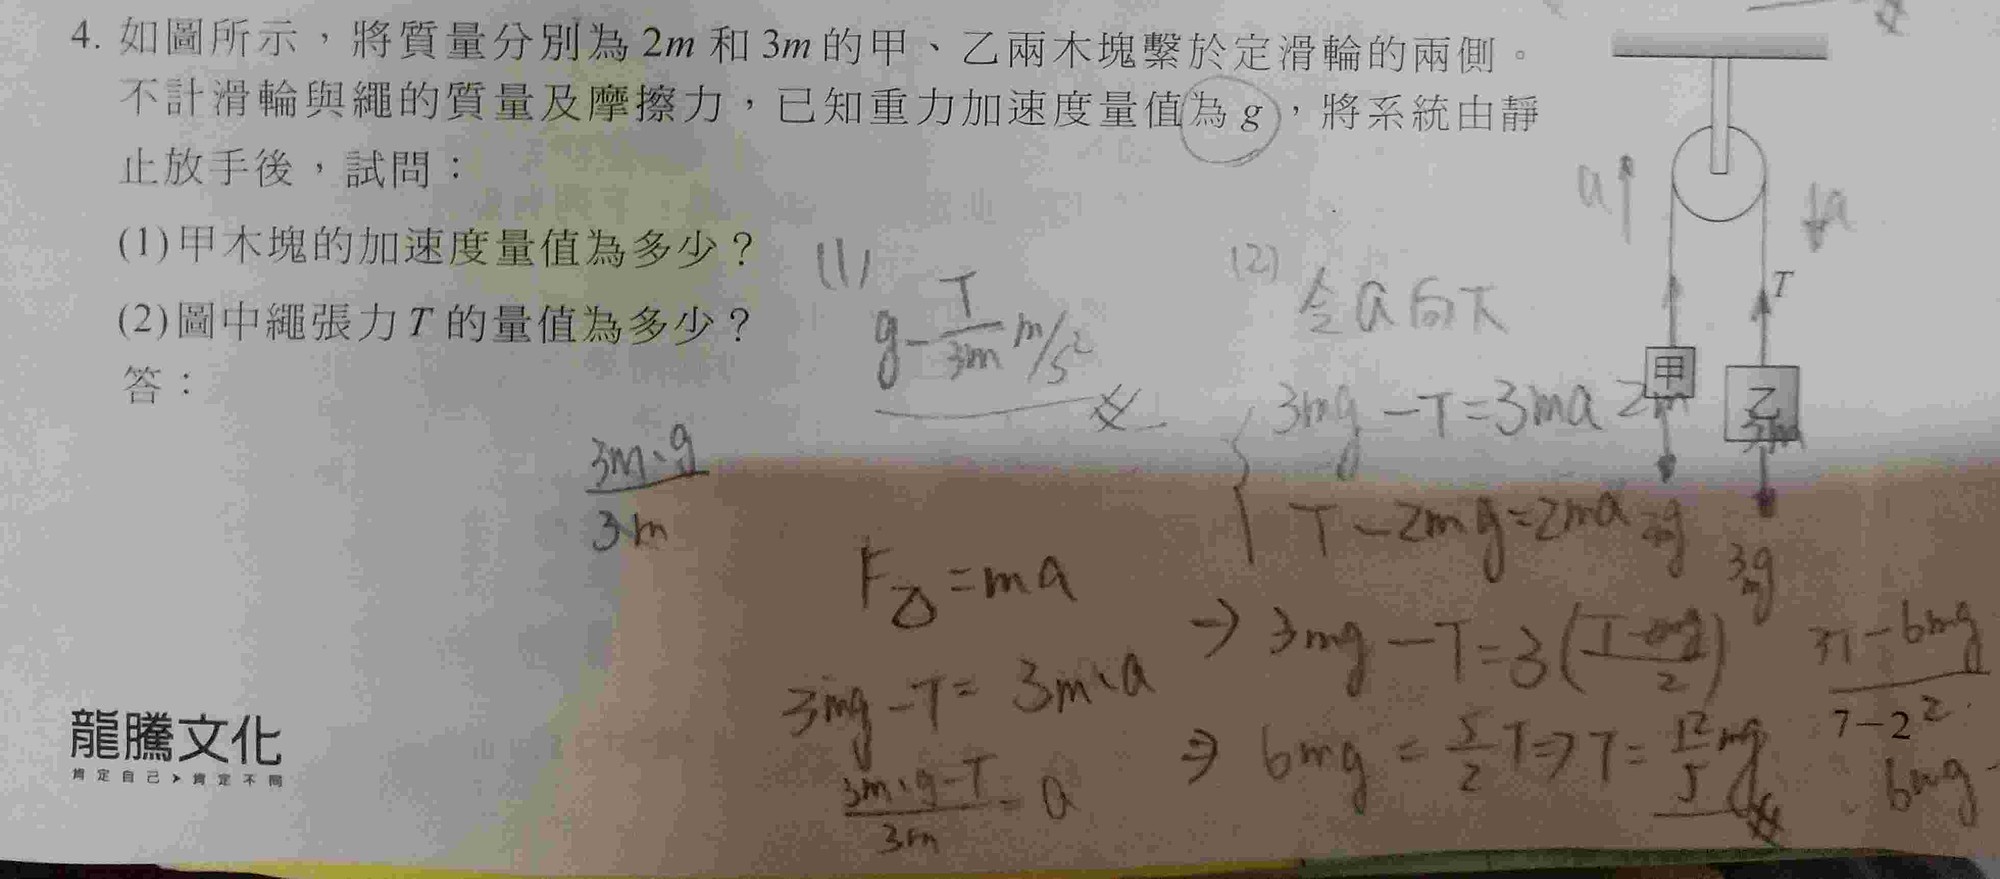 4. 如圖所示，將質量分別為 2m 和 3m 的甲、乙兩木塊繫於定滑輪的兩側。
不計滑輪與繩的質量及摩擦力，已知重力加速度量值為 g，將系統由靜
止放手後，試問：
(1)甲木塊的加速度量值為多少？
(2)圖中繩張力 T 的量值為多少？
答：
a
a
T
甲
乙
2m
3m
3mg
(1)
g - T/3m m/s²
(2)
令a向下
3mg - T = 3ma
T - 2mg = 2ma
3m·g/3m
F合 = ma
3mg - T = 3m·a
3m·g-T/3m = a
→ 3mg - T = 3(T-2mg/2)
⇒ 6mg = 5/2 T ⇒ T = 12/5 mg
3T - 6mg/2
6mg
龍騰文化
肯定自己 > 肯定不同
7-2